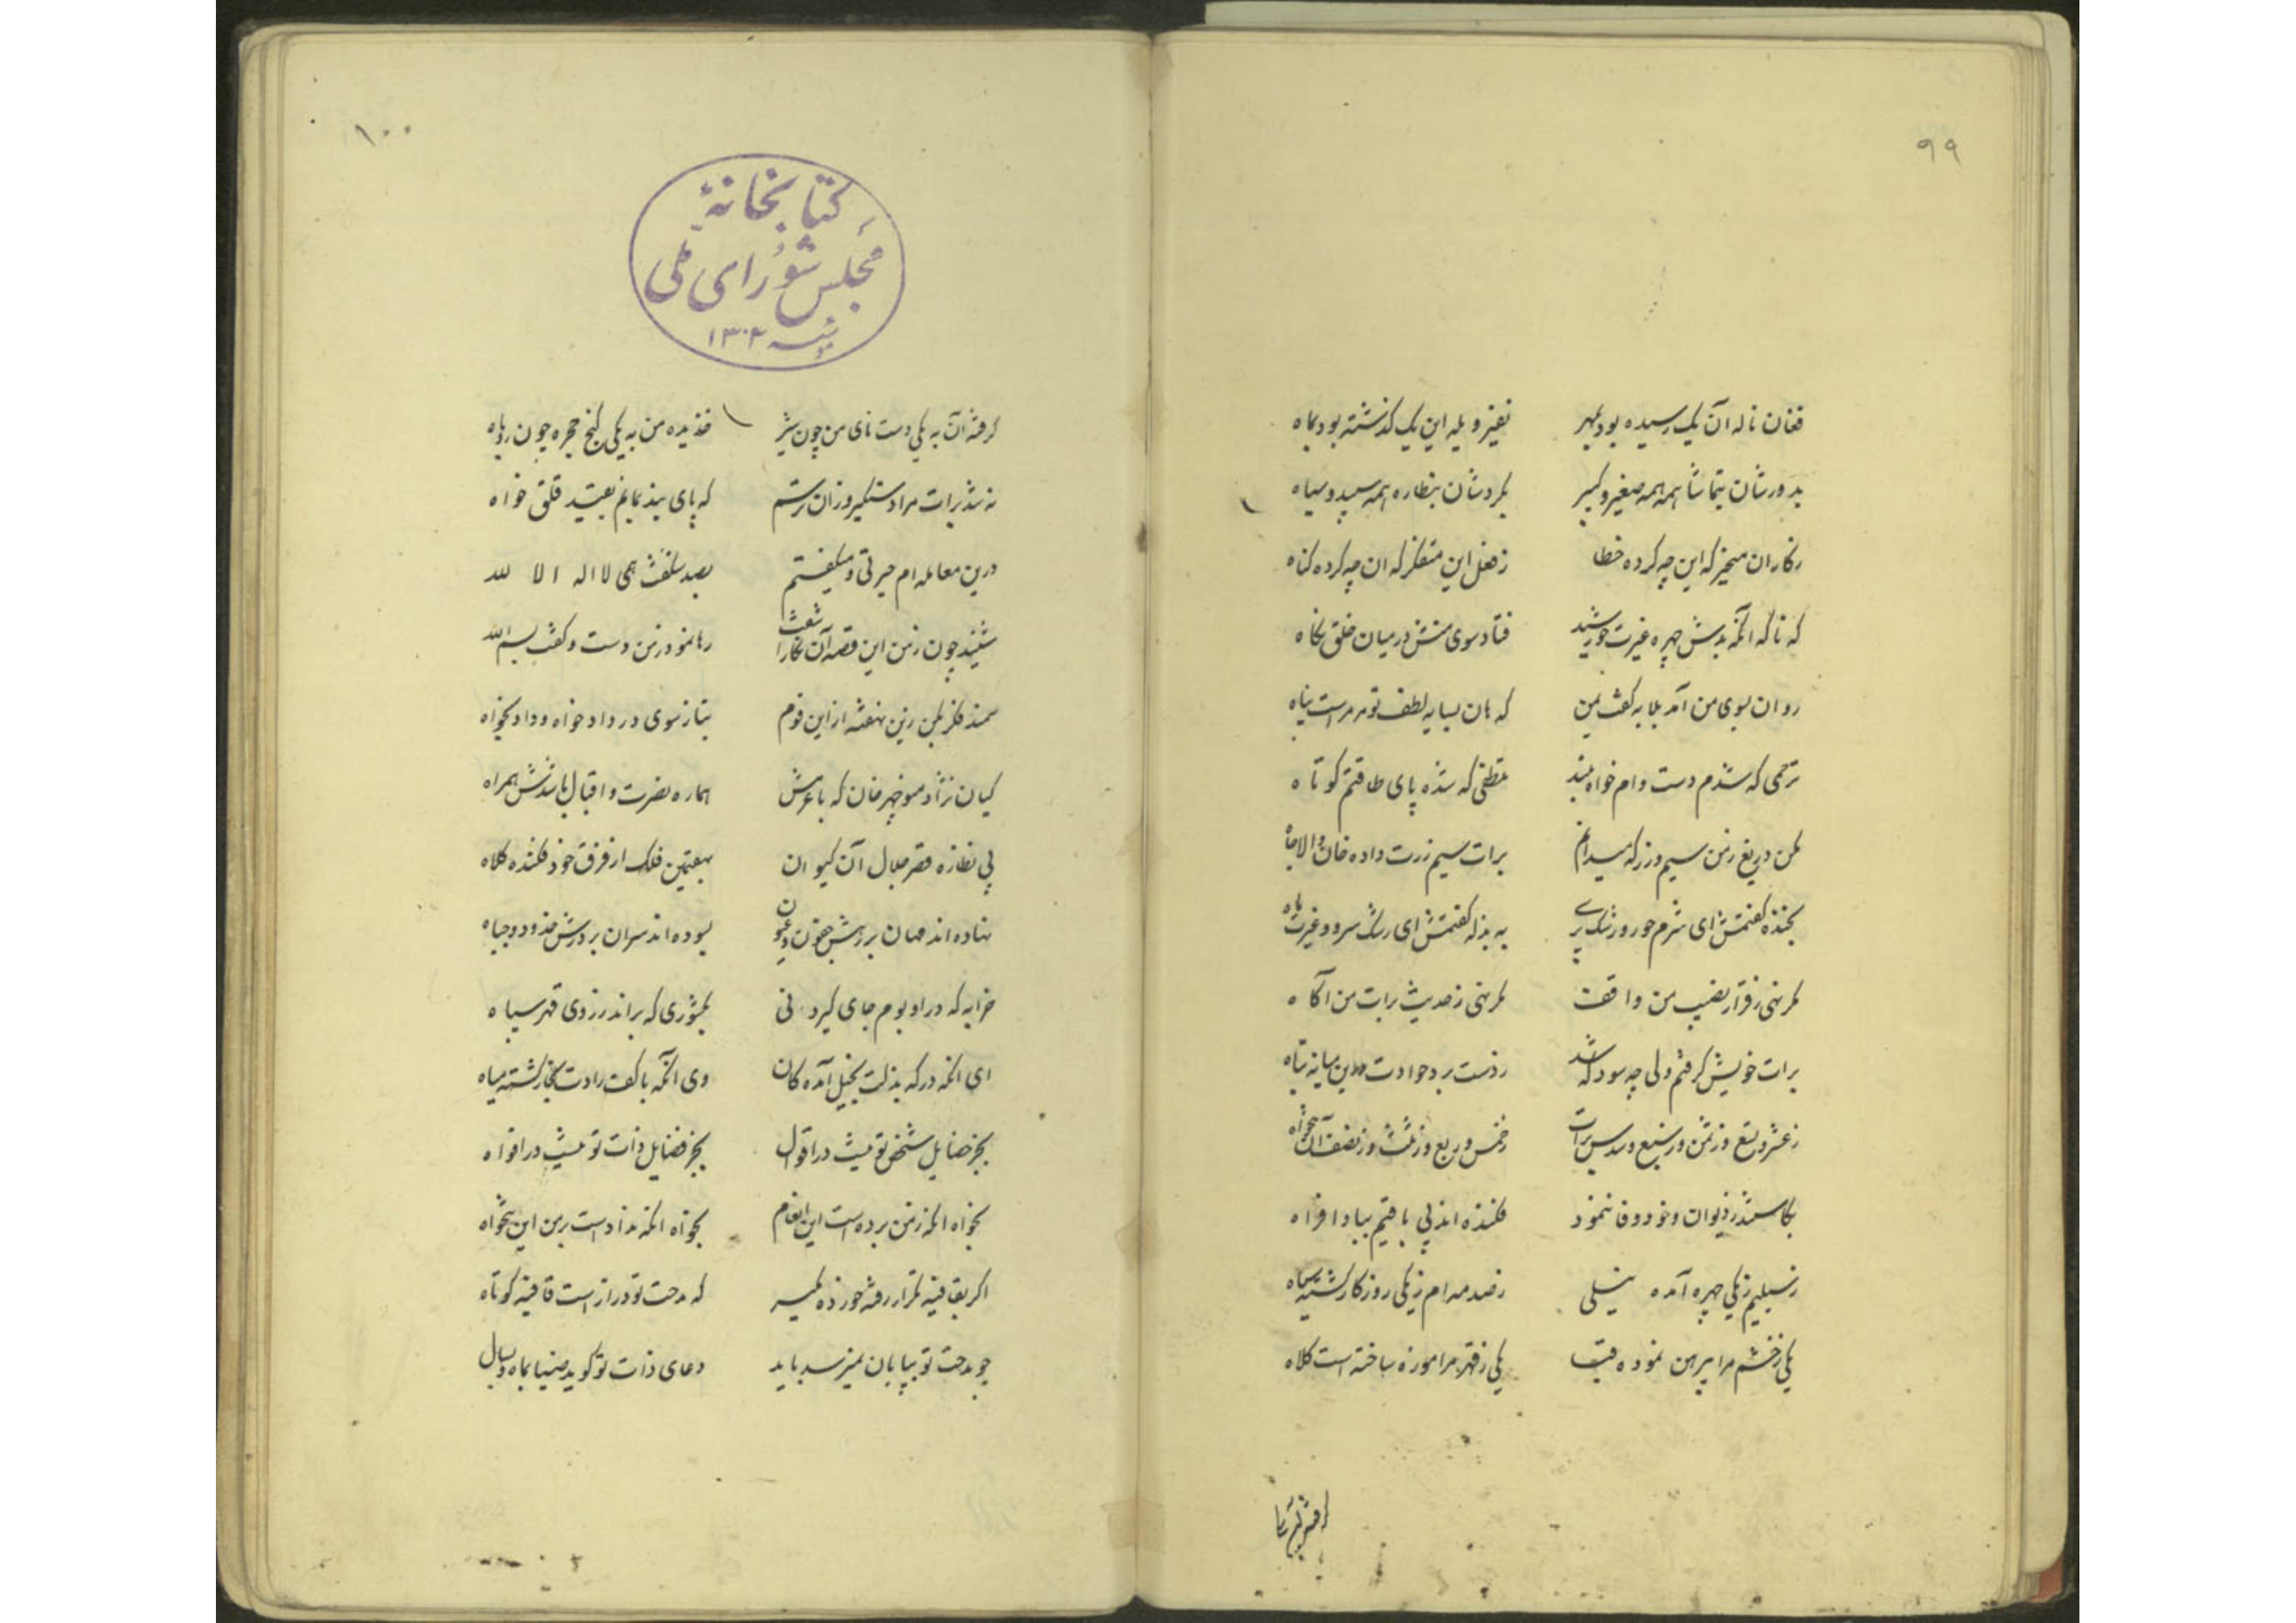 ٩٩
فغان ناله آن یک رسیده بود بمهر نفیر و یله این یک گذشته بود بماه
بدورشان بتماشا همه صغیر و کبیر بگردشان بنظاره همه سپید و سیاه
زکار ان متحیر که این چه کرده خطا ز فعل این متفکر که ان چه کرده گناه
که ناگه انکه بدش چهره غیرت خورشید فتاد سوی منش در میان خلق نگاه
روان بسوی من آمد بلابه گفت بمن که هان بسایه لطف تو مر مراست پناه
ترحمی که شدم دست وام خواه بلند تلطفی که شده پای طاقتم کوتاه
بمن دریغ زمن سیم و زر که میدانم برات سیم زرت داده خان والاجاه
بخنده گفتمش ای شرم حور و رشک پری به بذله گفتمش ای رشک سرو و غیرت ماه
مگر نئی ز قرار نصیب من واقف مگر نئی ز حدیث برات من آگاه
برات خویش گرفتم ولی چه سود که شد ز دست برد حوادث درین میانه تباه
ز عشر و تسع و ز ثمن و ز سبع و سدس برات ز خمس و ربع و ز ثلث و ز نصف آن
بکاستند ز دیوان و خود وفا ننمود فکنده اند پی باقیم بباد افراه
ز سیلیم ز یکی چهره آمده نیلی ز صدمه ام ز یکی روزگار گشته سیاه
یکی ز خشم مرا پیرهن نموده قبا یکی ز قهر مرا موزه ساخته است کلاه
١٠٠
کتابخانهٔ
مجلس شورای ملی
مؤسسه ١٣٠٢
گرفته آن به یکی دست نای من چون شیر خزیده من به یکی کنج حجره چون روباه
نه شد برات مرا دستگیر و زان ترسم که پای بند نمایم بقید قلق خواه
درین معامله ام حیرتی و میگفتم بصد شگفت همی لا اله الا لله
شنید چون زمن این قصه آن نگار شگفت رها نمود زمن دست و گفت بسم الله
سمند فکر بمن زین نهفته از این قوم بتاز سوی در داد خواه و داد بخواه
کیان نژاد منوچهر خان که با عزمش هماره نصرت و اقبال باشدش همراه
پی نظاره قصر جلال آن کیوان بهفتمین فلک از فرق خود فکنده کلاه
نهاده اند مهان بر رهش بسوده اند سران بر درش خدود و جباه
خرابه که در او بوم جای گیرد نی بکشوری که براند ز روی قهر سپاه
ای انکه در گه بذلت بخیل آمده کان وی انکه با کف رادت بخار گشته میاه
بجز خصایل شخص تو نیست در اقوال بجز فضایل ذات تو نیست در افواه
بخواه انکه زمن برده است این انعام بخواه انکه ندادست بمن این تنخواه
اگر بقافیه تکرار رفته خورده مگیر که مدحت تو دراز است قافیه کوتاه
چو مدحت تو بپایان نمیرسد باید دعای ذات تو گوید ضیا بماه و بسال